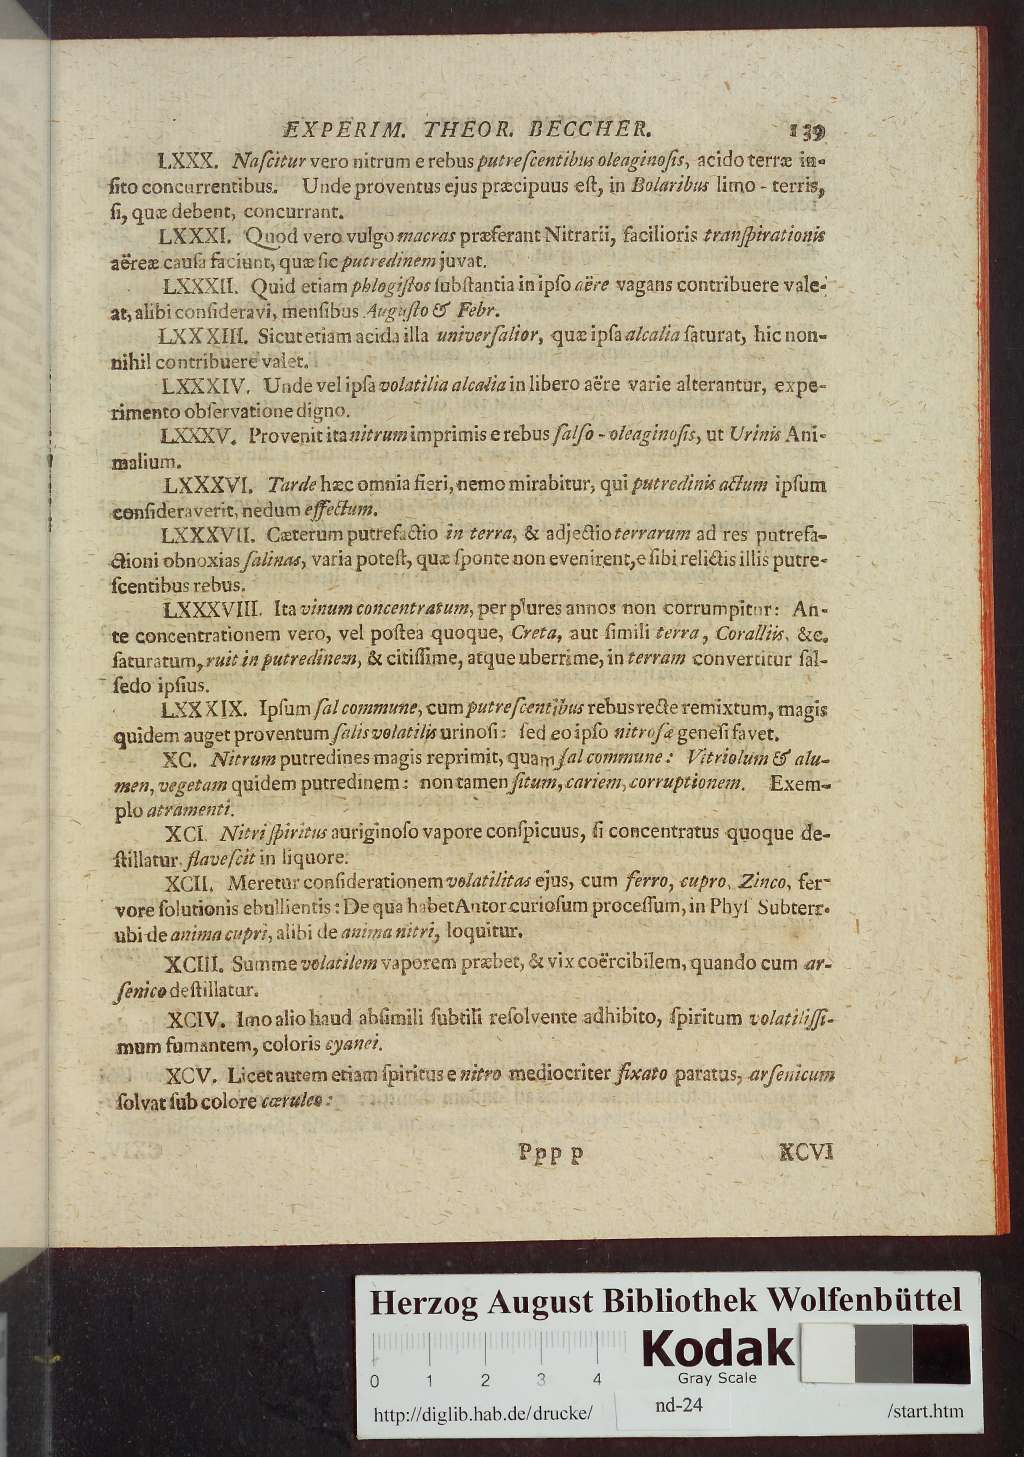 EXPERIM. THEOR. BECCHER. 139
LXXX. Naſcitur vero nitrum e rebus putreſcentibus oleaginoſis, acido terræ in-
ſito concurrentibus. Unde proventus ejus præcipuus eſt, in Bolaribus limo - terris,
ſi, quæ debent, concurrant.
LXXXI. Quod vero vulgo macras præferant Nitrarii, facilioris tranſpirationis
aëreæ cauſa faciunt, quæ ſic putredinem juvat.
LXXXII. Quid etiam phlogiſtos ſubſtantia in ipſo aëre vagans contribuere vale-
at, alibi conſideravi, menſibus Auguſto & Febr.
LXXXIII. Sicut etiam acida illa univerſalior, quæ ipſa alcalia ſaturat, hic non-
nihil contribuere valet.
LXXXIV. Unde vel ipſa volatilia alcalia in libero aëre varie alterantur, expe-
rimento obſervatione digno.
LXXXV. Provenit ita nitrum imprimis e rebus ſalſo - oleaginoſis, ut Urinis Ani-
malium.
LXXXVI. Tarde hæc omnia fieri, nemo mirabitur, qui putredinis actum ipſum
conſideraverit, nedum effectum.
LXXXVII. Cæterum putrefactio in terra, & adjectio terrarum ad res putrefa-
ctioni obnoxias ſalinas, varia poteſt, quæ ſponte non evenirent, e ſibi relictis illis putre-
ſcentibus rebus.
LXXXVIII. Ita vinum concentratum, per plures annos non corrumpitur: An-
te concentrationem vero, vel poſtea quoque, Creta, aut ſimili terra, Coralliis, &c.
ſaturatum, ruit in putredinem, & citiſſime, atque uberrime, in terram convertitur ſal-
ſedo ipſius.
LXXXIX. Ipſum ſal commune, cum putreſcentibus rebus recte remixtum, magis
quidem auget proventum ſalis volatilis urinoſi: ſed eo ipſo nitroſæ geneſi favet.
XC. Nitrum putredines magis reprimit, quam ſal commune: Vitriolum & alu-
men, vegetam quidem putredinem: non tamen ſitum, cariem, corruptionem. Exem-
plo atramenti.
XCI. Nitri ſpiritus auriginoſo vapore conſpicuus, ſi concentratus quoque de-
ſtillatur, flaveſcit in liquore.
XCII. Meretur conſiderationem volatilitas ejus, cum ferro, cupro, Zinco, fer-
vore ſolutionis ebullientis: De qua habet Autor curioſum proceſſum, in Phyſ Subterr.
ubi de anima cupri, alibi de anima nitri, loquitur.
XCIII. Summe volatilem vaporem præbet, & vix coërcibilem, quando cum ar-
ſenico deſtillatur.
XCIV. Imo alio haud abſimili ſubtili reſolvente adhibito, ſpiritum volatiliſſi-
mum fumantem, coloris cyanei.
XCV. Licet autem etiam ſpiritus e nitro mediocriter fixato paratus, arſenicum
ſolvat ſub colore cæruleo:
Pppp p XCVI
Herzog August Bibliothek Wolfenbüttel
Kodak
Gray Scale
0 1 2 3 4
http://diglib.hab.de/drucke/ nd-24 /start.htm